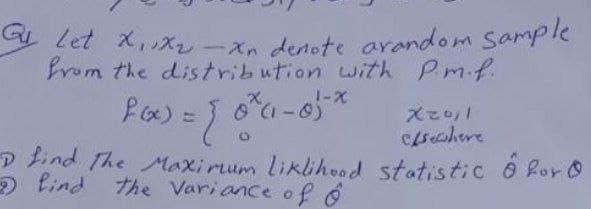 Q1 Let X1, X2 — Xn denote a random sample
from the distribution with P.m.f.
f(x) = { θ^x (1-θ)^1-x   x=0,1
0   elsewhere
① find The Maximum liklihood statistic θ̂ for θ
② find the Variance of θ̂